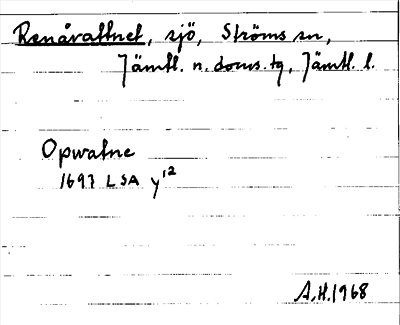 Renåvattnet, sjö, Ströms sn,
Jämtl. n. doms. tg, Jämtl. l.
Opwatne
1697 LSA y12
A.H. 1968